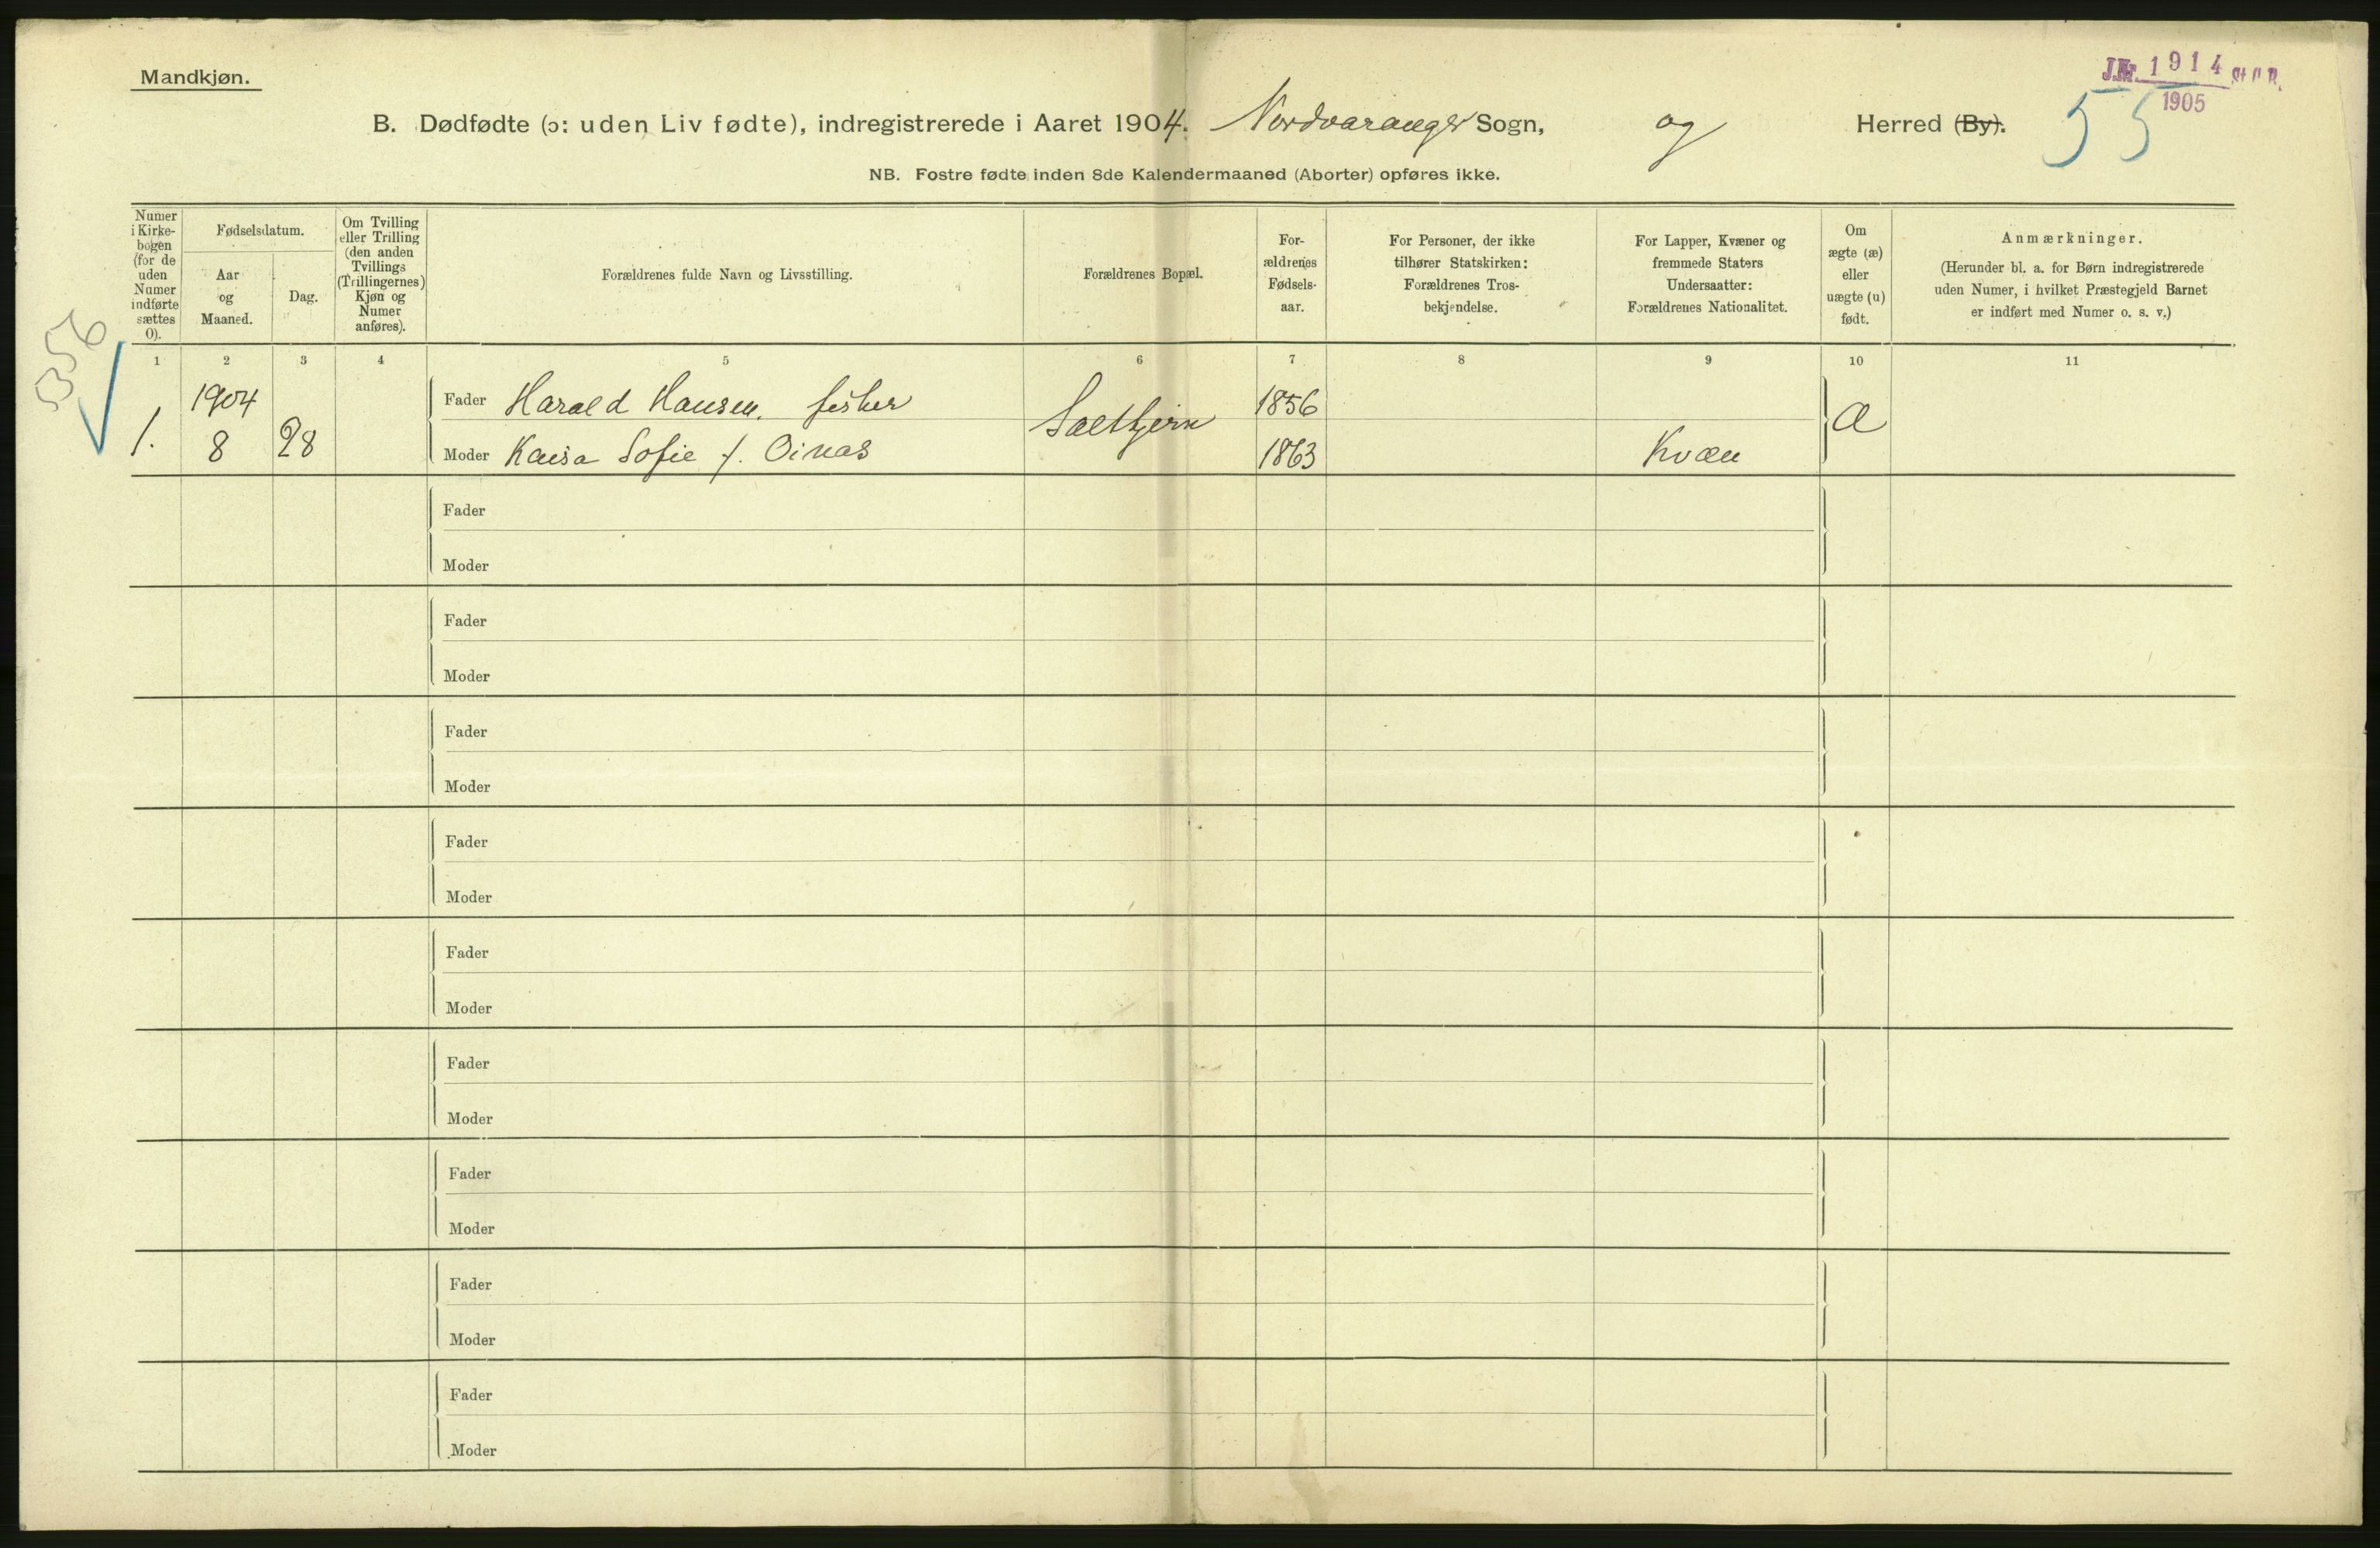 Mandkjøn.
J.Nr. 1914 St. C. B.
1905
55
B. Dødfødte (ɔ: uden Liv fødte), indregistrerede i Aaret 1904. Nordvaranger Sogn, og Herred (By).
NB. Fostre fødte inden 8de Kalendermaaned (Aborter) opføres ikke.
Numer i Kirkebogen (for de uden Numer indførte sættes 0).
Fødselsdatum.
Aar og Maaned.
Dag.
Om Tvilling eller Trilling (den anden Tvillings (Trillingernes) Kjøn og Numer anføres).
Forældrenes fulde Navn og Livsstilling.
Forældrenes Bopæl.
For-ældrenes Fødsels-aar.
For Personer, der ikke tilhører Statskirken: Forældrenes Tros-bekjendelse.
For Lapper, Kvæner og fremmede Staters Undersaatter: Forældrenes Nationalitet.
Om ægte (æ) eller uægte (u) født.
Anmærkninger.
(Herunder bl. a. for Børn indregistrerede uden Numer, i hvilket Præstegjeld Barnet er indført med Numer o. s. v.)
1 2 3 4 5 6 7 8 9 10 11
356
1. 1904 8 28
Fader Harald Hansen. fisker Saltjern 1856 æ
Moder Kaisa Sofie f. Oinas 1863 Kvæn
Fader
Moder
Fader
Moder
Fader
Moder
Fader
Moder
Fader
Moder
Fader
Moder
Fader
Moder
Fader
Moder
Fader
Moder